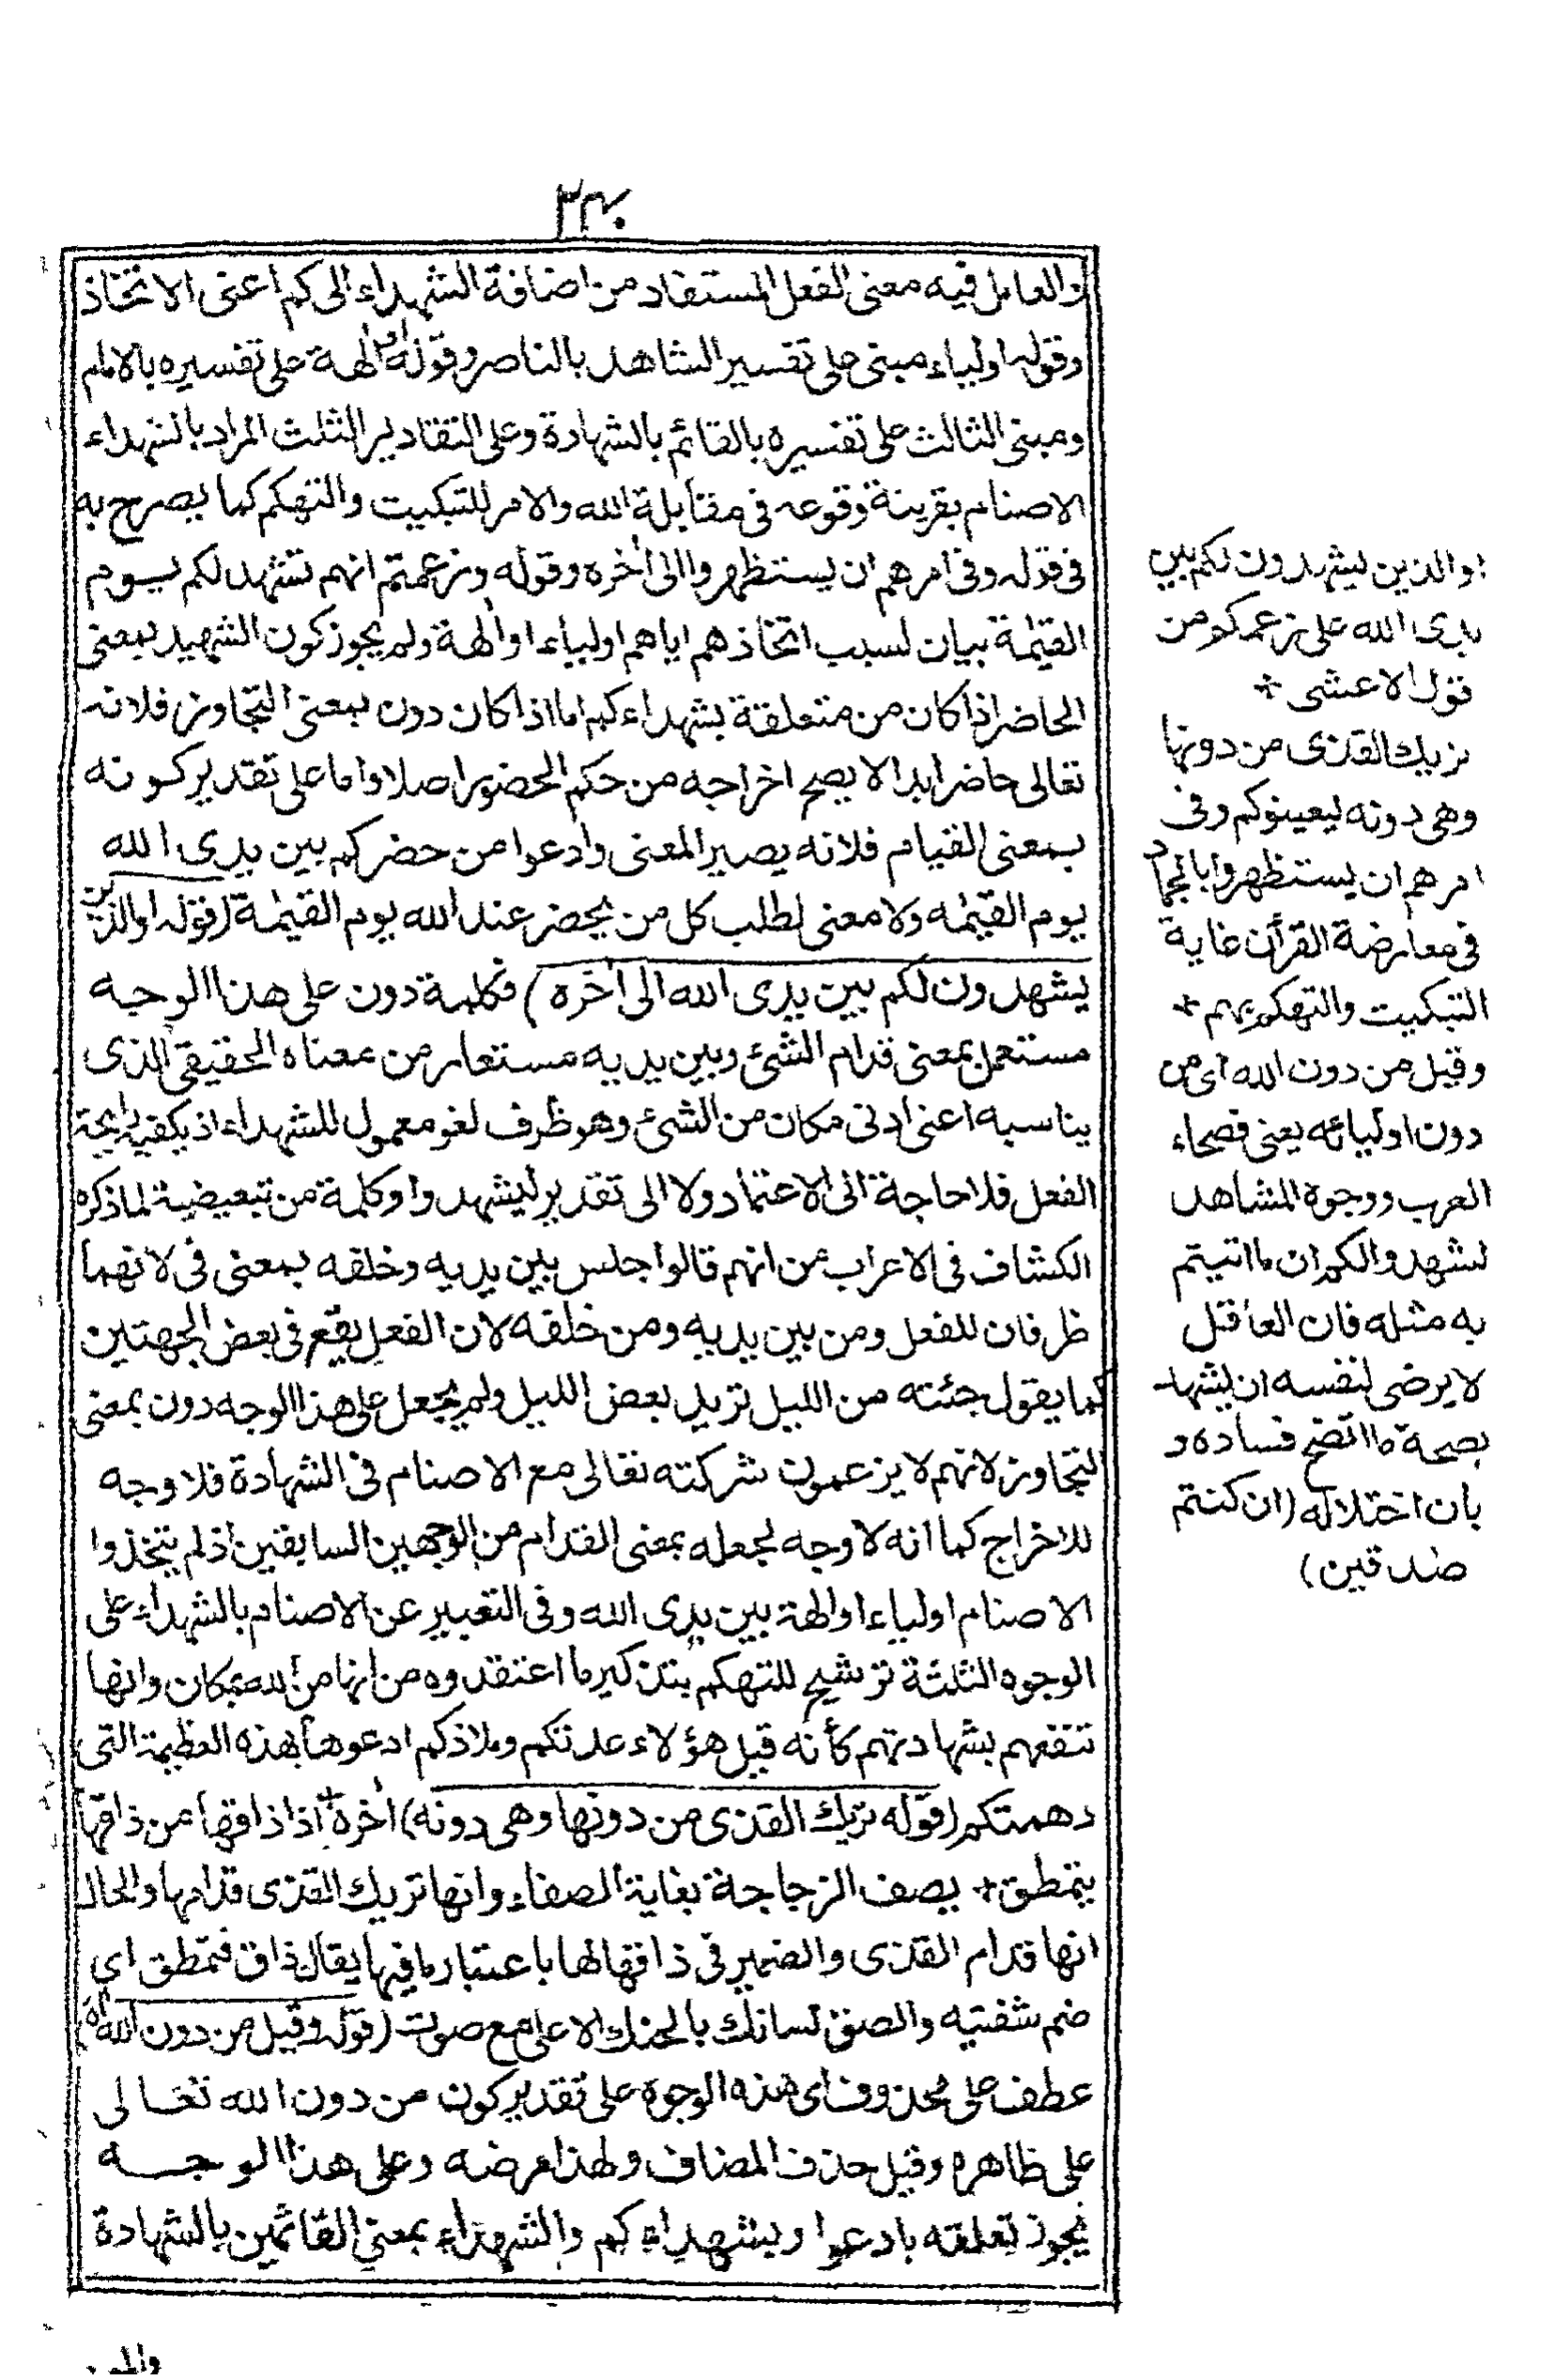 ٢٣٠
والعامل فيه معنى الفعل المستفاد من اضافة الشهداء الى كم اعنى الاتخاذ
وقوله اولياء مبنى على تفسير الشاهد بالناصر وقوله او الهة على تفسيره بالامام
ومبنى الثالث على تفسيره بالقائم بالشهادة وعلى التقادير الثلث المراد بالشهداء
الاصنام بقرينة وقوعه فى مقابلة الله والامر للتبكيت والتهكم كما يصرح به
فى قوله وفى امرهم ان يستظهروا الى أخره وقوله وزعمتم انهم تشهد لكم يوم
القيمة بيان لسبب اتخاذهم اياهم اولياء او الهة ولم يجوز كون الشهيد بمعنى
الحاضر اذا كان من متعلقة بشهداءكم اما اذا كان دون بمعنى التجاوز فلانه
تعالى حاضر ابدا لا يصح اخراجه من حكم الحضور اصلا واما على تقدير كونه
بمعنى القيام فلانه يصير المعنى وادعوا من حضركم بين يدى الله
يوم القيمه ولا معنى لطلب كل من يحضر عند الله يوم القيمة (قوله او الذين
يشهدون لكم بين يدى الله الى أخره) فكلمة دون على هذا الوجه
مستعمل بمعنى قدام الشئ وبين يديه مستعار من معناه الحقيقى الذى
يناسبه اعنى ادنى مكان من الشئ وهو ظرف لغو معمول للشهداء اذ يكفيه رايحة
الفعل فلا حاجة الى الاعتماد ولا الى تقدير ليشهدوا وكلمة من تبعيضية لما ذكره
الكشاف فى الاعراب من انهم قالوا جلس بين يديه وخلفه بمعنى فى لانهما
ظرفان للفعل ومن بين يديه ومن خلفه لان الفعل يقع فى بعض الجهتين
كما يقول جئته من الليل تريد بعض الليل ولم يجعل على هذا الوجه دون بمعنى
التجاوز لانهم لا يزعمون شركته تعالى مع الاصنام فى الشهادة فلا وجه
للاخراج كما انه لا وجه لجعله بمعنى القدام من الوجهين السابقين اذ لم يتخذوا
الاصنام اولياء او الهة بين يدى الله وفى التعبير عن الاصنام بالشهداء على
الوجوه الثلثة ترشيح للتهكم بتذكير ما اعتقدوه من انها من الله بمكان وانها
تنفعهم بشهادتهم كأنه قيل هؤلاء عدتكم وملاذكم ادعوها لهذه العظيمة التى
دهمتكم (قوله تريك القذى من دونها وهى دونه) أخره + اذا ذاقها من ذاقها
يتمطق + يصف الزجاجة بغاية الصفاء وانها تريك القذى قدامها والحال
انها قدام القذى والضمير فى ذاقها لها باعتبار ما فيها يقال ذاق فتمطق اى
ضم شفتيه والصق لسانك بالحنك الاعلى مع صوت (قوله وقيل من دون الله اه)
عطف على محذوف اى هذه الوجوه على تقدير كون من دون الله تعالى
على ظاهره وقيل حذف المضاف ولهذا مرضه وعلى هذا الوجه
يجوز تعلقه بادعوا وبشهداءكم والشهداء بمعنى القائمين بالشهادة
او الذين يشهدون لكم بين
يدى الله على زعمكم من
قول الاعشى +
تريك القذى من دونها
وهى دونه ليعينوكم وفى
امرهم ان يستظهروا بالجماد
فى معارضة القرآن غاية
التبكيت والتهكم بهم +
وقيل من دون الله اى من
دون اوليائه يعنى فصحاء
العرب ووجوه المشاهد
ليشهدوا لكم ان ما اتيتم
به مثله فان العاقل
لا يرضى لنفسه ان يشهد
بصحة ما اتضح فساده و
بان اختلاله (ان كنتم
صدقين)